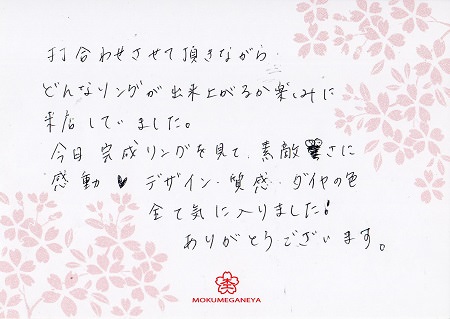 打合わせさせて頂きながら
どんなリングが出来上がるか楽しみに
来店していました。
今日 完成リングを見て、素敵さに
感動♥ デザイン・質感・ダイヤの色
全て気に入りました!
ありがとうございます。
MOKUMEGANEYA